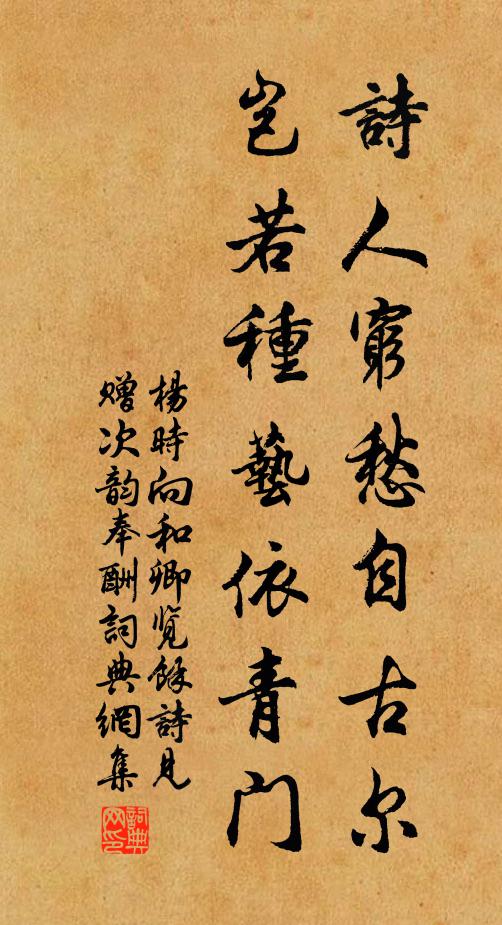 詩人窮愁自古尔
岂若種藝依青门
楊時向和卿览餘詩見
赠次韵奉酬詞典網集
詞典网印